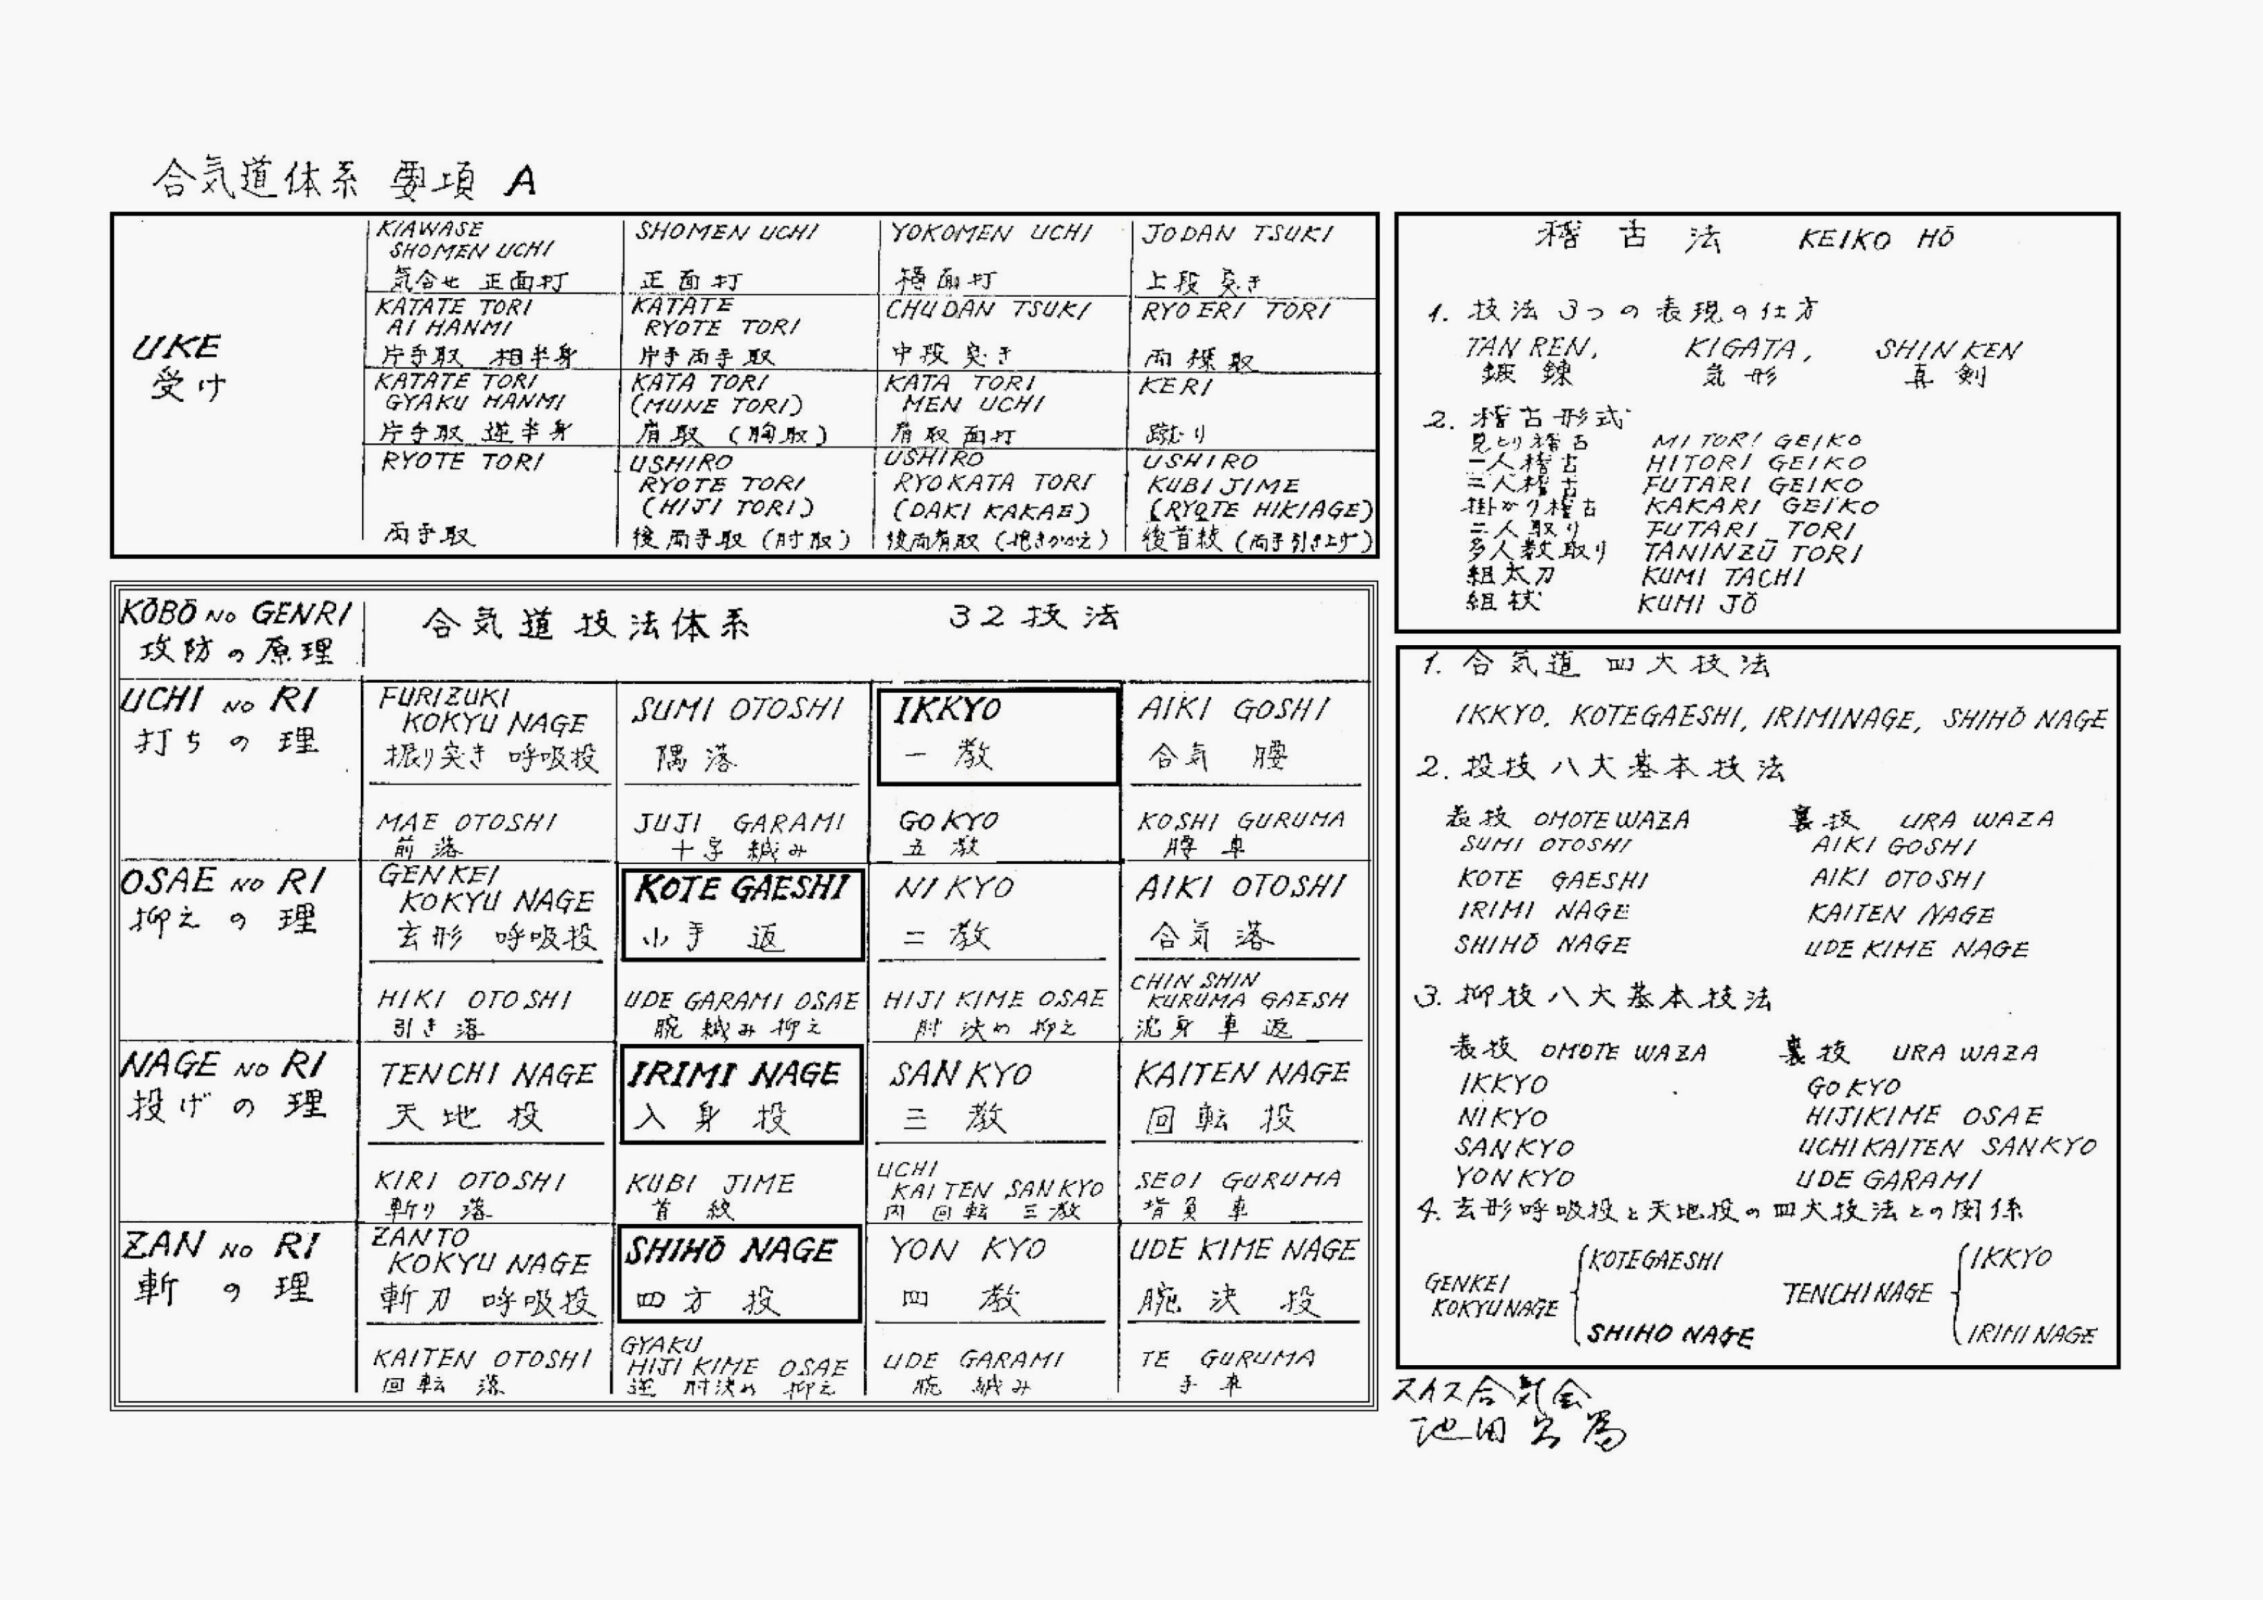 合気道体系 要項 A
UKE
受け
KIAWASE
SHOMEN UCHI
気合せ 正面打
SHOMEN UCHI
正面打
YOKOMEN UCHI
横面打
JODAN TSUKI
上段突き
KATATE TORI
AI HANMI
片手取 相半身
KATATE
RYOTE TORI
片手両手取
CHUDAN TSUKI
中段突き
RYO ERI TORI
両襟取
KATATE TORI
GYAKU HANMI
片手取 逆半身
KATA TORI
(MUNE TORI)
肩取 (胸取)
KATA TORI
MEN UCHI
肩取面打
KERI
蹴り
RYOTE TORI
両手取
USHIRO
RYOTE TORI
(HIJI TORI)
後両手取 (肘取)
USHIRO
RYOKATA TORI
(DAKI KAKAE)
後両肩取 (抱きかかえ)
USHIRO
KUBI JIME
(RYOTE HIKIAGE)
後首絞 (両手引き上げ)
KŌBŌ NO GENRI
攻防の原理
合気道技法体系 32技法
UCHI NO RI
打ちの理
FURIZUKI
KOKYU NAGE
振り突き 呼吸投
SUMI OTOSHI
隅落
IKKYO
一教
AIKI GOSHI
合気腰
MAE OTOSHI
前落
JUJI GARAMI
十字緘み
GO KYO
五教
KOSHI GURUMA
腰車
OSAE NO RI
抑えの理
GENKEI
KOKYU NAGE
玄形 呼吸投
KOTE GAESHI
小手返
NI KYO
二教
AIKI OTOSHI
合気落
HIKI OTOSHI
引き落
UDE GARAMI OSAE
腕緘み抑え
HIJI KIME OSAE
肘決め抑え
CHIN SHIN
KURUMA GAESH
沈身車返
NAGE NO RI
投げの理
TENCHI NAGE
天地投
IRIMI NAGE
入身投
SAN KYO
三教
KAITEN NAGE
回転投
KIRI OTOSHI
斬り落
KUBI JIME
首絞
UCHI
KAITEN SANKYO
内回転三教
SEOI GURUMA
背負車
ZAN NO RI
斬の理
ZANTO
KOKYU NAGE
斬刀 呼吸投
SHIHŌ NAGE
四方投
YON KYO
四教
UDE KIME NAGE
腕決投
KAITEN OTOSHI
回転落
GYAKU
HIJI KIME OSAE
逆肘決め抑え
UDE GARAMI
腕緘み
TE GURUMA
手車
稽古法 KEIKO HŌ
1. 技法3つの表現の仕方
TAN REN, KIGATA, SHIN KEN
鍛錬 気形 真剣
2. 稽古形式
見とり稽古 MITORI GEIKO
一人稽古 HITORI GEIKO
二人稽古 FUTARI GEIKO
掛かり稽古 KAKARI GEIKO
二人取り FUTARI TORI
多人数取り TANINZŪ TORI
組太刀 KUMI TACHI
組杖 KUMI JŌ
1. 合気道 四大技法
IKKYO, KOTEGAESHI, IRIMINAGE, SHIHŌ NAGE
2. 投技 八大基本技法
表技 OMOTE WAZA 裏技 URA WAZA
SUMI OTOSHI AIKI GOSHI
KOTE GAESHI AIKI OTOSHI
IRIMI NAGE KAITEN NAGE
SHIHŌ NAGE UDE KIME NAGE
3. 抑技 八大基本技法
表技 OMOTE WAZA 裏技 URA WAZA
IKKYO GO KYO
NIKYO HIJIKIME OSAE
SANKYO UCHIKAITEN SANKYO
YONKYO UDE GARAMI
4. 玄形呼吸投と天地投の四大技法との関係
GENKEI
KOKYUNAGE
KOTEGAESHI
SHIHO NAGE
TENCHI NAGE
IKKYO
IRIMI NAGE
スイス合気会
池田